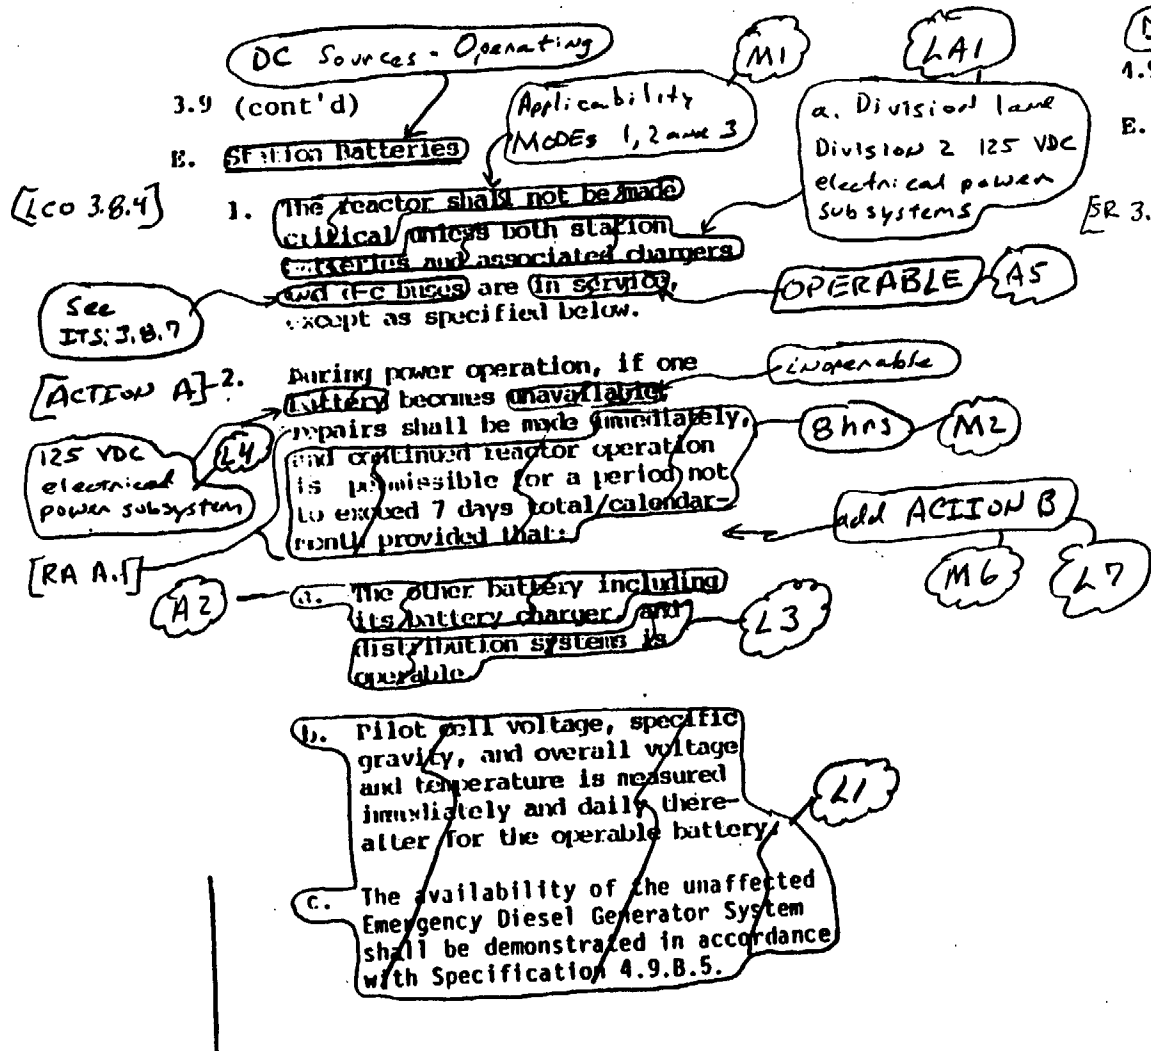 DC Sources - Operating
M1
LA1
3.9 (cont'd)
Applicability
MODEs 1, 2 and 3
a. Division 1 and
Division 2 125 VDC
electrical power
subsystems
1.9
E.
E. Station Batteries
[LCO 3.8.4]
[SR 3.
1. The reactor shall not be made
critical unless both station
batteries and associated chargers
and dFc buses are in service,
except as specified below.
See
ITS: 3.8.7
OPERABLE
A5
[ACTION A]
2. During power operation, if one
battery becomes unavailable,
repairs shall be made immediately,
and continued reactor operation
is permissible for a period not
to exceed 7 days total/calendar-
month provided that:
inoperable
8 hrs
M2
125 VDC
electrical
power subsystem
L4
add ACTION B
M6
L7
[RA A.1]
A2
a. The other battery including
its battery charger, and
distribution systems is
operable
L3
b. Pilot cell voltage, specific
gravity, and overall voltage
and temperature is measured
immediately and daily there-
after for the operable battery.
L1
c. The availability of the unaffected
Emergency Diesel Generator System
shall be demonstrated in accordance
with Specification 4.9.B.5.